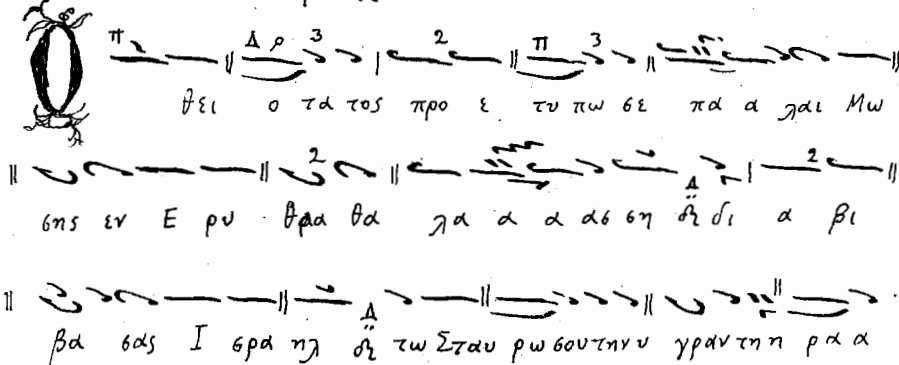 Ο θει ο τα τος προ ε τυ πω σε πα α λαι Μω
σης εν Ε ρυ θρα θα λα α α ασ ση δι α βι
βα σας Ι σρα ηλ τω Σταυ ρω σου την υ γραν τη η ρα α